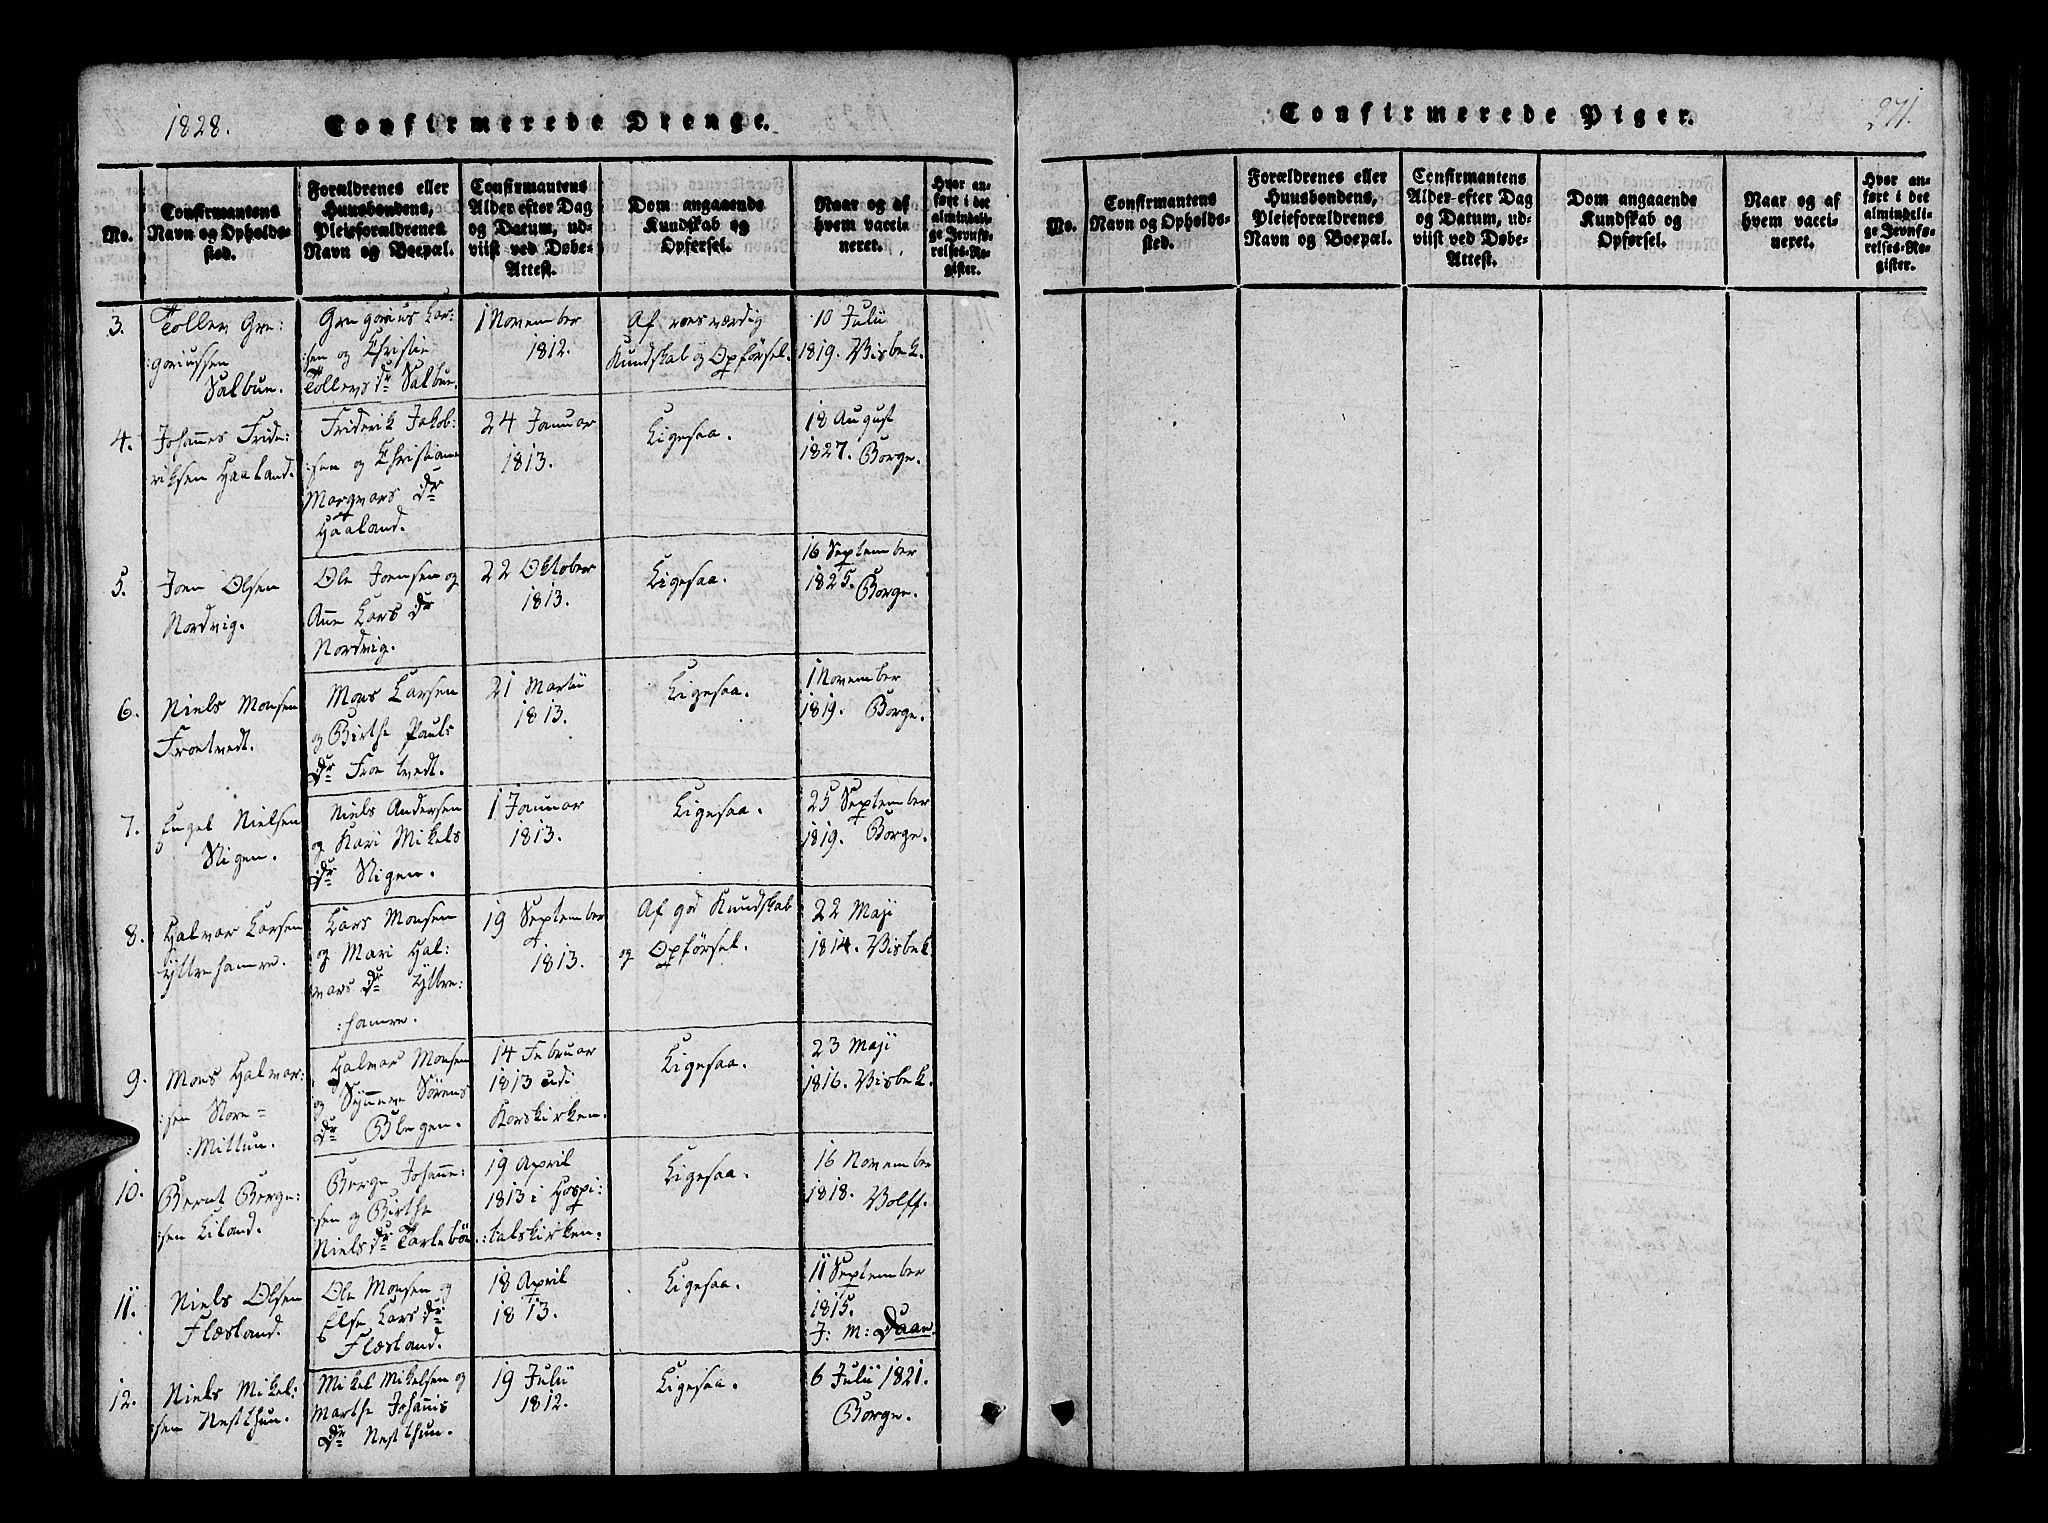 1828.
Confirmerede Drenge.
No.
Confirmantens
Navn og Opholds-
sted.
Forældrenes eller
Huusbondens,
Pleieforældrenes
Navn og Boepæl.
Confirmantens
Alder efter Dag
og Datum, ud-
viist ved Døbe-
Attest.
Dom angaaende
Kundskab og
Opførsel.
Naar og af
hvem vacci-
neret.
Hvor an-
ført i det
almindeli-
ge Jevnfø-
relses-Re-
gister.
3.
Tollev Gre:
:goriussen
Salbun.
Gregorius Lar:
:sen og Christie
Tollevs Dr Salbun.
1 November
1812.
Af roesværdig
Kundskab og Opførsel.
10 Julii
1819. Visbek.
4.
Johannes Fride:
riksen Haaland.
Friderik Jakob:
:sen og Christiane
Margvars Dr
Haaland.
24 Januar
1813.
Ligesaa.
18 August
1827. Borge.
5.
Joen Olsen
Nordvig.
Ole Joensen og
Anne Lars Dr
Nordvig.
22 Oktober
1813.
Ligesaa.
16 September
1825. Borge.
6.
Niels Monsen
Froetvedt.
Mons Larsen
og Birthe Pauls
Dr Froetvedt.
21 Martii
1813.
Ligesaa.
1 November
1819. Borge.
7.
Engel Nielsen
Stigen.
Niels Andersen
og Kari Mikels
Dr Stigen.
1 Januar
1813.
Ligesaa.
25 September
1819. Borge.
8.
Halvor Larsen
Yttrehamre.
Lars Monsen
og Mari Hal:
vars Dr Yttre:
:hamre.
19 September
1813.
Af god Kundskab
og Opførsel.
22 Maji
1814. Visbek
9.
Mons Halvor:
:sen Store=
:Mittun.
Halvor Monsen
og Synneve Sörens
Dr Blegen.
14 Februar
1813 udi
Korskirken.
Ligesaa.
23 Maji
1816. Visbek.
10.
Bernt Berge:
:sen Liland.
Berge Johanne:
:sen og Birthe
Niels Dr Tarlebøe.
19 April
1813 i Hospi:
:talskirken.
Ligesaa.
16 November
1818. Wolff.
11.
Niels Olsen
Flæsland.
Ole Monsen og
Else Lars Dr
Flæsland.
18 April
1813.
Ligesaa.
11 September
1815.
J: M: Daae.
12.
Niels Mikel:
:sen Nestthun.
Mikel Mikelsen og
Marthe Johannis
Dr Nestthun.
19 Julii
1812.
Ligesaa.
6 Julii 1821.
Borge.
271.
Confirmerede Piger.
No.
Confirmantens
Navn og Opholds-
sted.
Forældrenes eller
Huusbondens,
Pleieforældrenes
Navn og Boepæl.
Confirmantens
Alder efter Dag
og Datum, ud-
viist ved Døbe-
Attest.
Dom angaaende
Kundskab og
Opførsel.
Naar og af
hvem vacci-
neret.
Hvor an-
ført i det
almindeli-
ge Jevnfø-
relses-Re-
gister.